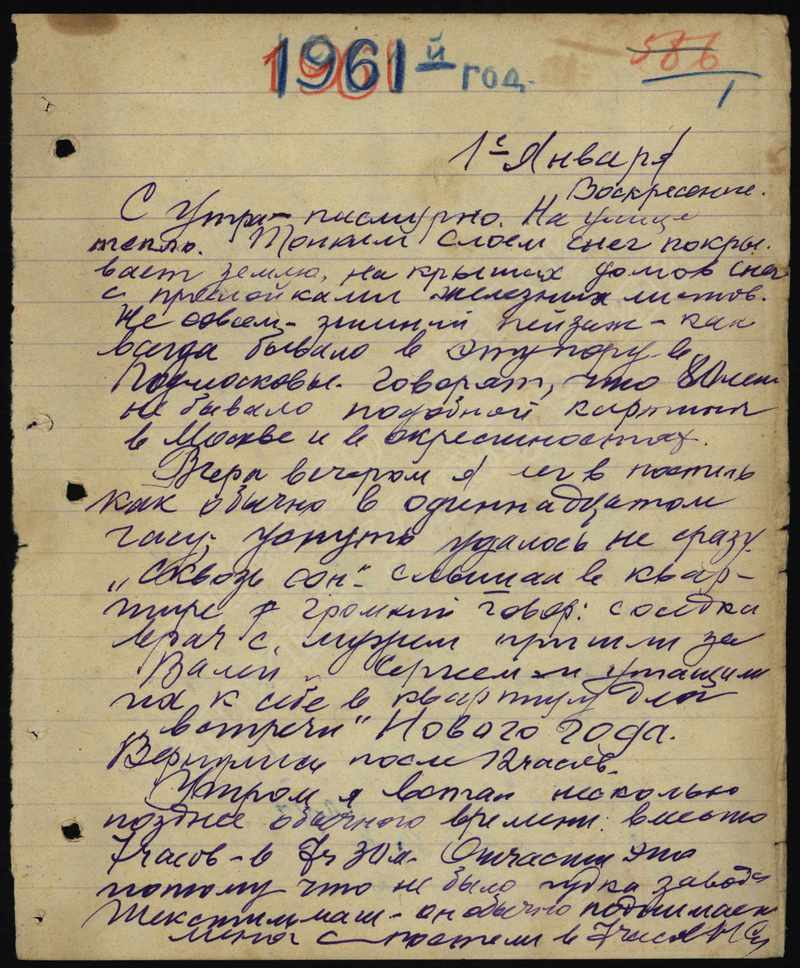 1961й год.
586
1
1е Января
Воскресение.
С утра - пасмурно. На улице
тепло. Тонким слоем снег покры-
вает землю, на крышах домов снег
с прослойками железных листов.
Не совсем - зимний пейзаж - как
всегда бывало в эту пору в
Подмосковье. Говорят, что 80 лет
не бывало подобной картины
в Москве и в окрестностях.
Вчера вечером я лег в постель
как обычно в одиннадцатом
часу; уснуть удалось не сразу.
"Сквозь сон" слышал в квар-
тире громкий говор: соседка
врач с мужем пришли за
Валей Сергеем и утащили
их к себе в квартиру для
"встречи" Нового Года.
Вернулись после 12 часов.
Утром я встал несколько
позднее обычного времени: вместо
7 часов - в 7ч 30м. Отчасти это
потому что не было гудка завода
Текстильмаш - он обычно поднимает
меня с постели в 7 часов